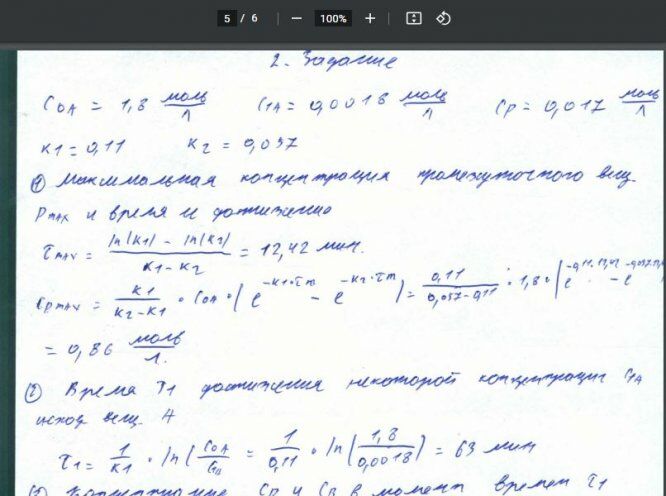 5 / 6 — 100% +
2. Задание
C0A = 1,8 моль/л C1A = 0,0018 моль/л Cp = 0,017 моль/л
K1 = 0,11 K2 = 0,037
① Максимальная концентрация промежуточного вещ.
Pmax и время и достижения
τmax = (ln(K1) - ln(K2))/(K1 - K2) = 12,42 мин.
Cpmax = K1/(K2-K1) · C0A · (e^-K1·τm - e^-K2·τm) = 0,11/(0,057-0,11) · 1,8 · (e^-0,11·12,42 - e^-0,057
= 0,86 моль/л.
② Время τ1 достижения некоторой концентрации C1A
исход вещ. A
τ1 = 1/K1 · ln(C0A/C1A) = 1/0,11 · ln(1,8/0,0018) = 63 мин
CP и CB в момент времен τ1